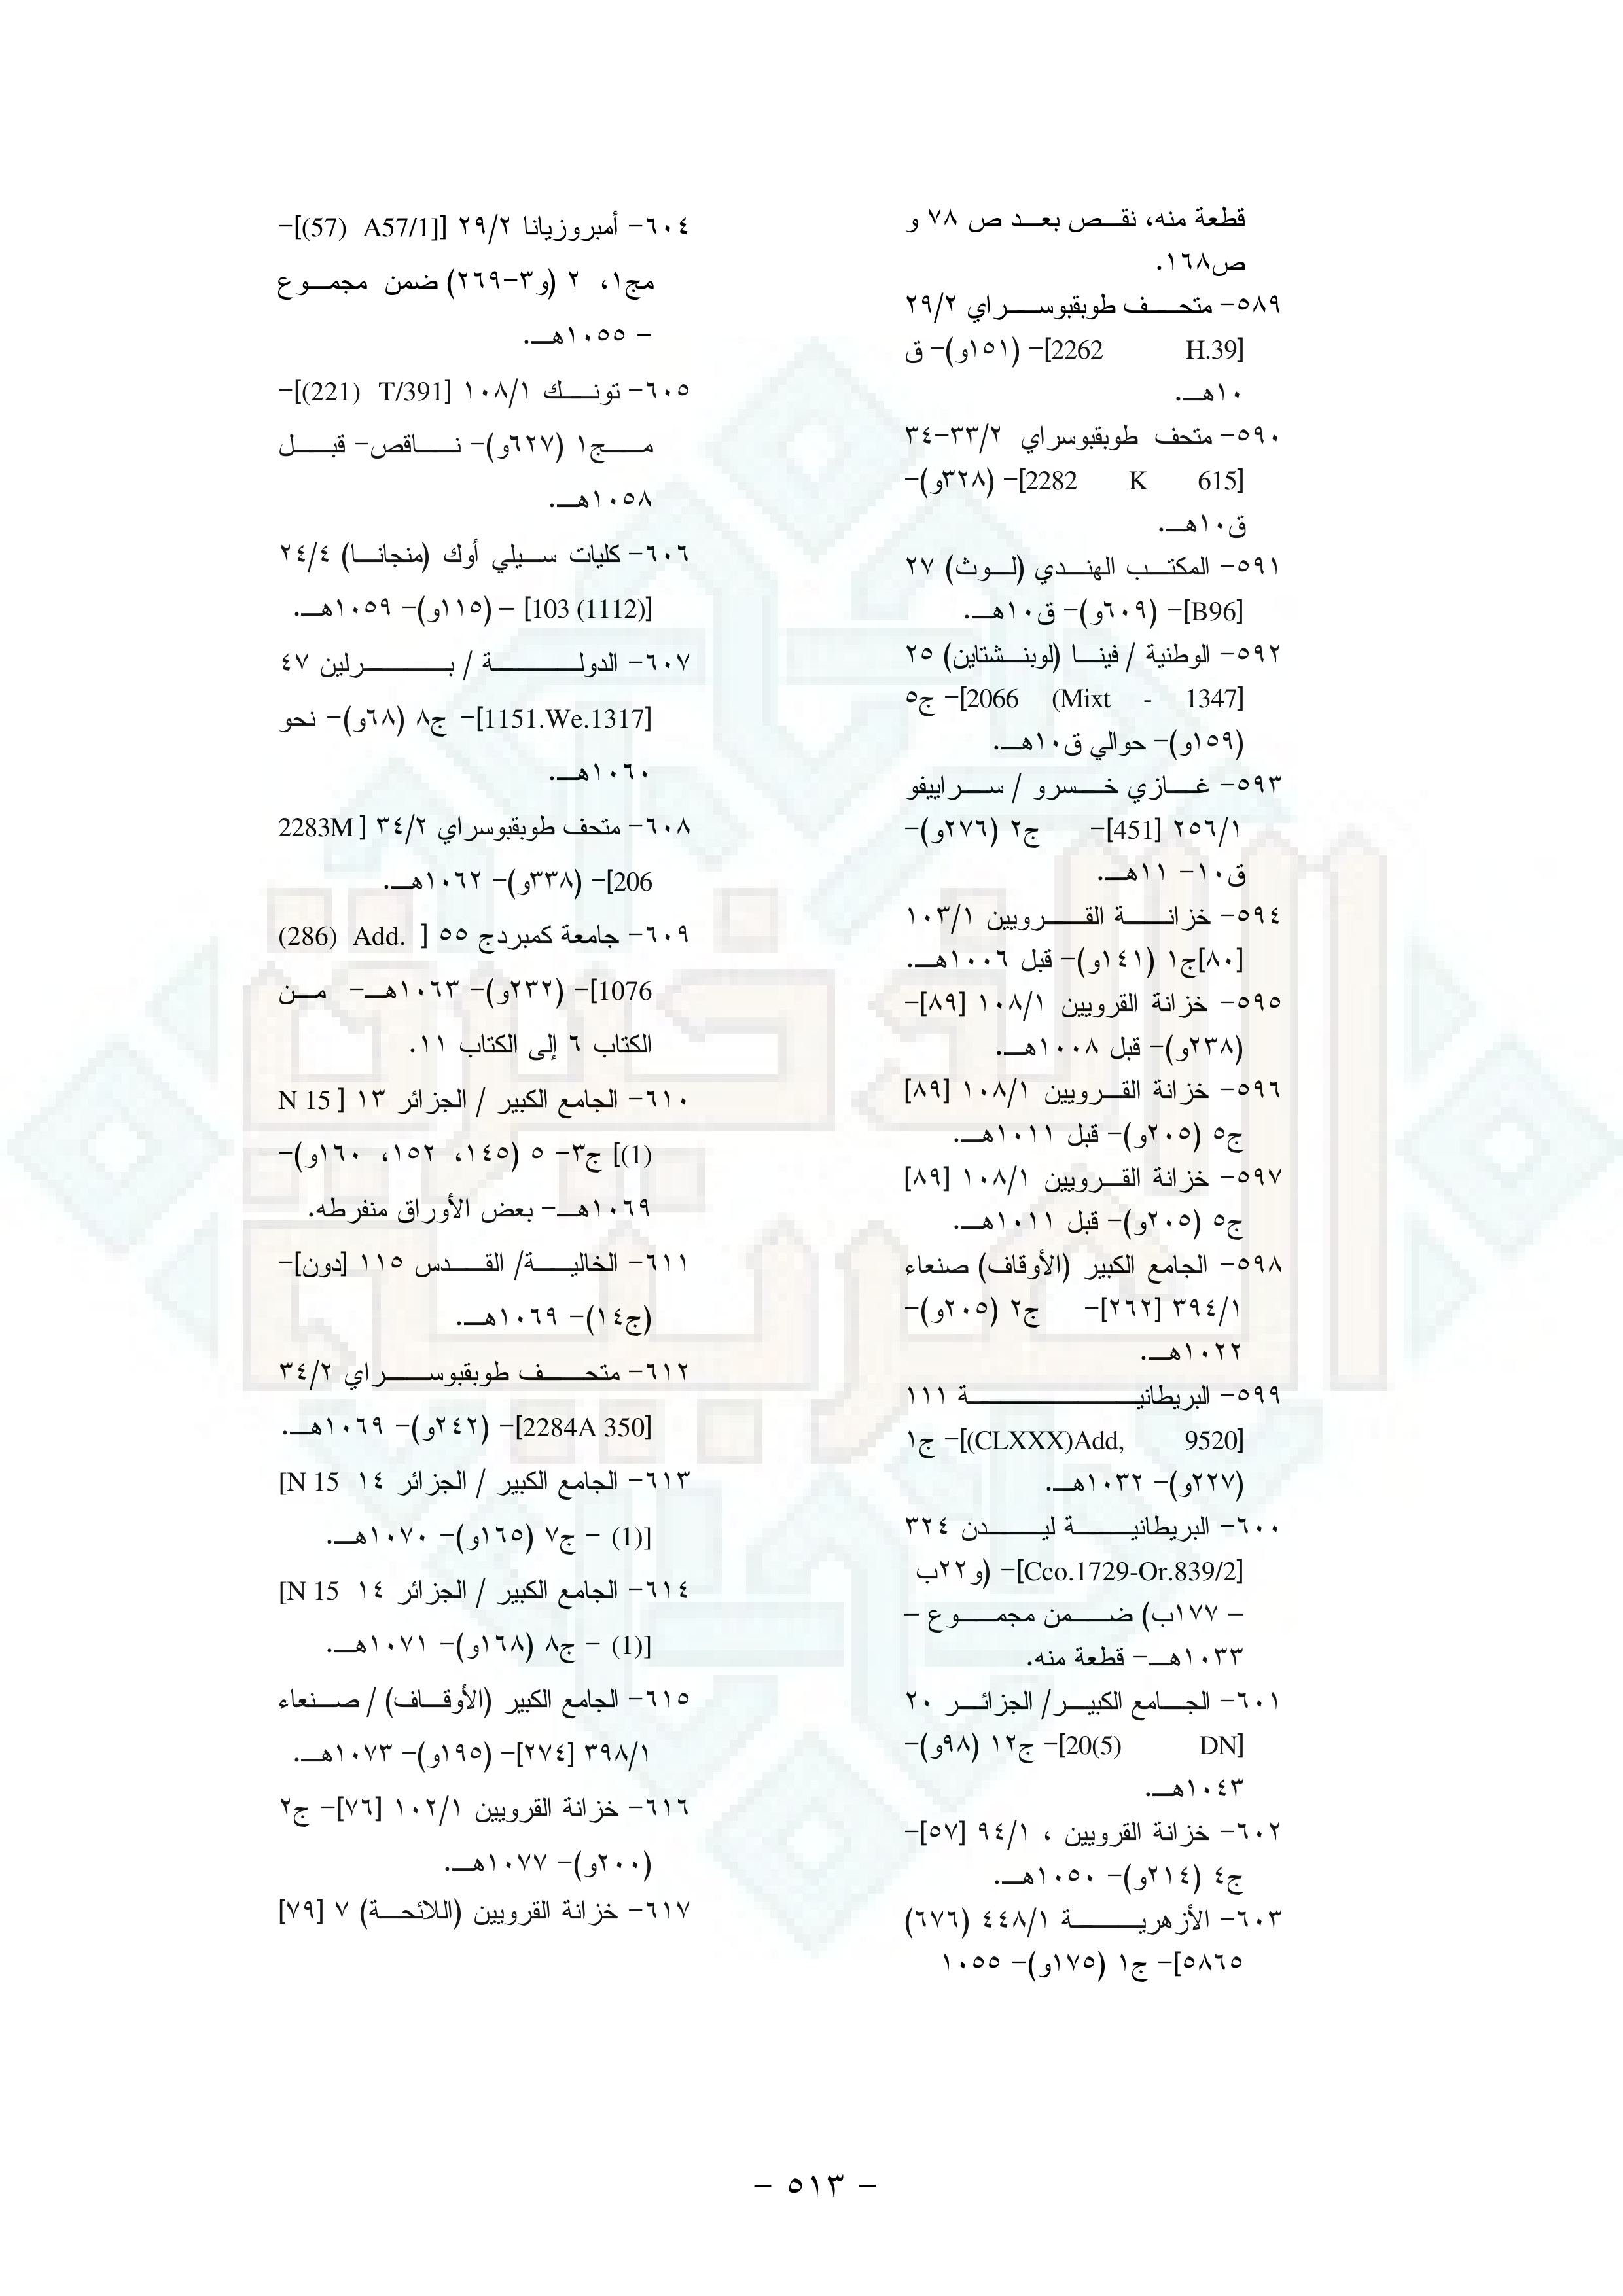 قطعة منه، نقص بعد ص ٧٨ و
ص١٦٨.
٥٨٩- متحف طوبقبوسراي ٢٩/٢
[2262 H.39]- (١٥١و)- ق
١٠هـ.
٥٩٠- متحف طوبقبوسراي ٣٣/٢-٣٤
[2282 K 615]- (٣٢٨و)-
ق١٠هـ.
٥٩١- المكتب الهندي (لوث) ٢٧
[B96]- (٦٠٩و)- ق١٠هـ.
٥٩٢- الوطنية / فينا (لوبنشتاين) ٢٥
[2066 (Mixt - 1347]- ج٥
(١٥٩و)- حوالي ق١٠هـ.
٥٩٣- غازي خسرو / سراييفو
٢٥٦/١ [451]- ج٢ (٢٧٦و)-
ق١٠- ١١هـ.
٥٩٤- خزانة القرويين ١٠٣/١
[٨٠]ج١ (١٤١و)- قبل ١٠٠٦هـ.
٥٩٥- خزانة القرويين ١٠٨/١ [٨٩]-
(٢٣٨و)- قبل ١٠٠٨هـ.
٥٩٦- خزانة القرويين ١٠٨/١ [٨٩]
ج٥ (٢٠٥و)- قبل ١٠١١هـ.
٥٩٧- خزانة القرويين ١٠٨/١ [٨٩]
ج٥ (٢٠٥و)- قبل ١٠١١هـ.
٥٩٨- الجامع الكبير (الأوقاف) صنعاء
٣٩٤/١ [٢٦٢]- ج٢ (٢٠٥و)-
١٠٢٢هـ.
٥٩٩- البريطانية ١١١
[(CLXXX)Add, 9520]- ج١
(٢٢٧و)- ١٠٣٢هـ.
٦٠٠- البريطانية ليدن ٣٢٤
[Cco.1729-Or.839/2]- (و٢٢ب
- ١٧٧ب) ضمن مجموع -
١٠٣٣هـ- قطعة منه.
٦٠١- الجامع الكبير/ الجزائر ٢٠
[20(5) DN]- ج١٢ (٩٨و)-
١٠٤٣هـ.
٦٠٢- خزانة القرويين ، ٩٤/١ [٥٧]-
ج٤ (٢١٤و)- ١٠٥٠هـ.
٦٠٣- الأزهرية ٤٤٨/١ (٦٧٦)
٥٨٦٥]- ج١ (١٧٥و)- ١٠٥٥
٦٠٤- أمبروزيانا ٢٩/٢ [[(57) A57/1]-
مج١، ٢ (و٣-٢٦٩) ضمن مجموع
- ١٠٥٥هـ.
٦٠٥- تونك ١٠٨/١ [(221) T/391]-
مج١ (٦٢٧و)- ناقص- قبل
١٠٥٨هـ.
٦٠٦- كليات سيلي أوك (منجانا) ٢٤/٤
[103 (1112)] – (١١٥و)- ١٠٥٩هـ.
٦٠٧- الدولة / برلين ٤٧
[1151.We.1317]- ج٨ (٦٨و)- نحو
١٠٦٠هـ.
٦٠٨- متحف طوبقبوسراي ٣٤/٢ [2283M
206]- (٣٣٨و)- ١٠٦٢هـ.
٦٠٩- جامعة كمبردج ٥٥ [ (286) Add.
1076]- (٢٣٢و)- ١٠٦٣هـ- من
الكتاب ٦ إلى الكتاب ١١.
٦١٠- الجامع الكبير / الجزائر ١٣ [N 15
(1)] ج٣- ٥ (١٤٥، ١٥٢، ١٦٠و)-
١٠٦٩هـ- بعض الأوراق منفرطه.
٦١١- الخالية/ القدس ١١٥ [دون]-
(ج١٤)- ١٠٦٩هـ.
٦١٢- متحف طوبقبوسراي ٣٤/٢
[2284A 350]- (٢٤٢و)- ١٠٦٩هـ.
٦١٣- الجامع الكبير / الجزائر ١٤ [N 15
(1)] - ج٧ (١٦٥و)- ١٠٧٠هـ.
٦١٤- الجامع الكبير / الجزائر ١٤ [N 15
(1)] - ج٨ (١٦٨و)- ١٠٧١هـ.
٦١٥- الجامع الكبير (الأوقاف) / صنعاء
٣٩٨/١ [٢٧٤]- (١٩٥و)- ١٠٧٣هـ.
٦١٦- خزانة القرويين ١٠٢/١ [٧٦]- ج٢
(٢٠٠و)- ١٠٧٧هـ.
٦١٧- خزانة القرويين (اللائحة) ٧ [٧٩]
- ٥١٣ -